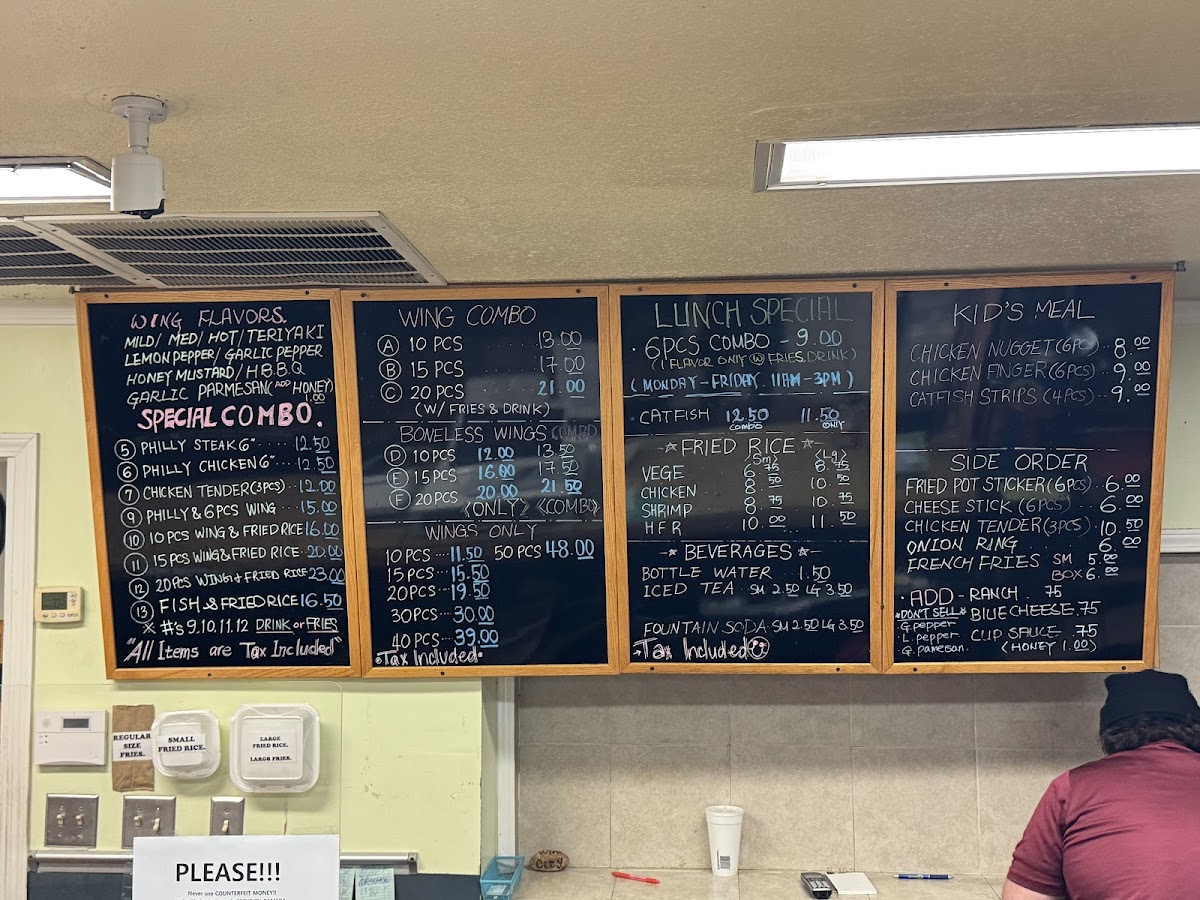 WING FLAVORS.
MILD/ MED/ HOT/ TERIYAKI
LEMON PEPPER/ GARLIC PEPPER
HONEY MUSTARD/ H.B.B.Q
GARLIC PARMESAN (ADD HONEY)
1.00
SPECIAL COMBO.
5 PHILLY STEAK 6" 12.50
6 PHILLY CHICKEN 6" 12.50
7 CHICKEN TENDER (3PCS) 12.00
9 PHILLY & 6PCS WING 15.00
10 10 PCS WING & FRIED RICE 16.00
11 15 PCS WING & FRIED RICE 20.00
12 20 PCS WING + FRIED RICE 23.00
13 FISH & FRIED RICE 16.50
* #'s 9.10.11.12 DRINK or FRIES
"All Items are Tax Included"
WING COMBO
A 10 PCS 13.00
B 15 PCS 17.00
C 20 PCS 21.00
(W/ FRIES & DRINK)
BONELESS WINGS COMBO
D 10 PCS 12.00 13.50
E 15 PCS 16.00 17.50
F 20 PCS 20.00 21.50
<ONLY> <COMBO>
WINGS ONLY
10 PCS 11.50 50 PCS 48.00
15 PCS 15.50
20 PCS 19.50
30 PCS 30.00
40 PCS 39.00
•Tax Included•
LUNCH SPECIAL
• 6PCS COMBO - 9.00
(1 FLAVOR ONLY W FRIES, DRINK)
(MONDAY - FRIDAY 11AM - 3PM)
CATFISH 12.50 11.50
COMBO ONLY
FRIED RICE
<Sm> <Lg>
VEGE 6.75 8.75
CHICKEN 8.50 10.50
SHRIMP 8.75 10.75
H F R 10.00 11.50
BEVERAGES
BOTTLE WATER 1.50
ICED TEA SM 2.50 LG 3.50
FOUNTAIN SODA SM 2.50 LG 3.50
•Tax Included
KID'S MEAL
CHICKEN NUGGET (6PC) 8.00
CHICKEN FINGER (6PCS) 9.00
CATFISH STRIPS (4PCS) 9.00
SIDE ORDER
FRIED POT STICKER (6PCS) 6.00
CHEESE STICK (6PCS) 6.00
CHICKEN TENDER (3PCS) 10.50
ONION RING 6.00
FRENCH FRIES SM 5.00
BOX 6.00
• ADD - RANCH .75
*DON'T SELL* BLUE CHEESE .75
•G.pepper
•L.pepper CUP SAUCE .75
•G.pamesan. (HONEY 1.00)
REGULAR
SIZE
FRIES.
SMALL
FRIED RICE.
LARGE
FRIED RICE.
LARGR FRIES.
PLEASE!!!
Never use COUNTERFEIT MONEY!!
City